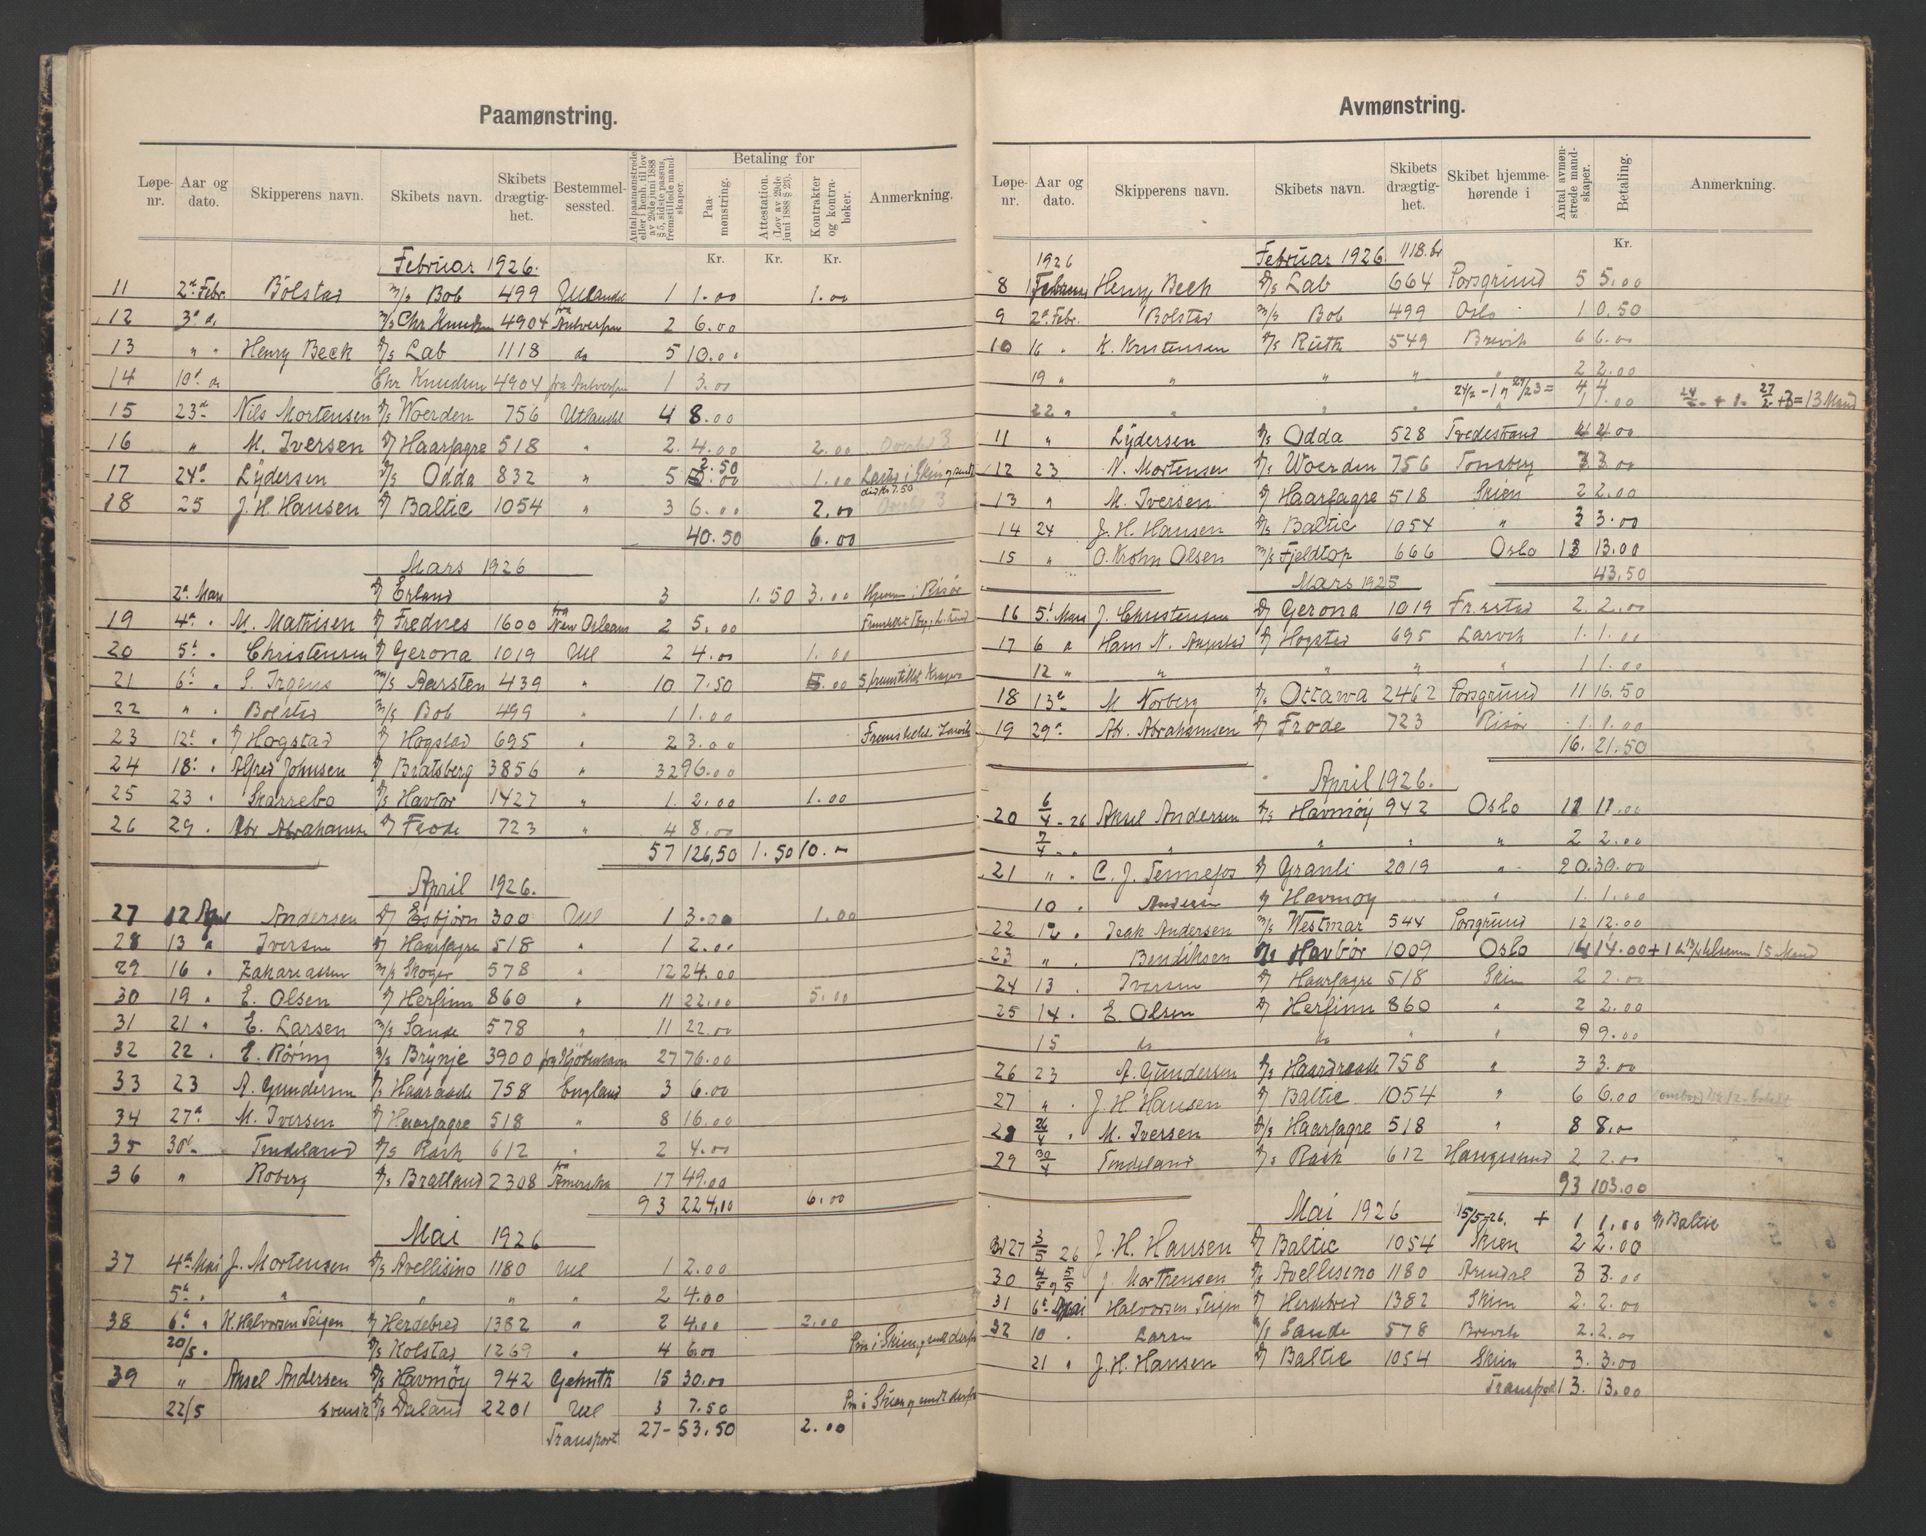 Paamønstring.
Løpe-nr. Aar og dato. Skipperens navn. Skibets navn. Skibets drægtig-het. Bestemmel-sessted. Antal paamønstrede eller i henh. til lov av 29de juni 1888 § 5, sidste passus, fremstillede mand-skaper. Betaling for Paa-mønstring. Attestation. (Lov av 29de juni 1888 § 23). Kontrakter og kontra-bøker. Anmerkning.
Kr. Kr. Kr.
Februar 1926.
11 2' Febr. Bolstad M/S Bob 499 Utlandet 1 1.00 1.00
12 3' d. M/S Chr Knudsen 4904 fra Antverpen 2 6.00
13 " " Henry Beck D/S Lab 1118 do 5 10.00
14 10' d. Chr Knudsen 4904 fra Antverpen 1 3.00
15 23' Nils Mortensen D/S Woerden 756 Utlandet 4 8.00
16 " M. Iversen D/S Haarfagre 518 " 2. 4.00 2.00 3
17 24' Lydersen D/S Odda 832 " 5 3.50 1.00 7.50
18 25 J. H. Hansen D/S Baltic 1054 " 3 6.00 2.00 3
40.50 6.00
Mars 1926
2' Mars D/S Erland 3 1.50 3.00 Risør
19 4' " M. Mathisen D/S Frednes 1600 fra New Orleans 2 5.00
20 5' " Christensen D/S Gerona 1019 Utl 2 4.00 1.00
21 6' " S. Irgens M/S Aarsten 439 " 10 7.50 5.00 5 fremstillet Kragerø
22 " " Bolstad M/S Bob 499 " 1 1.00
23 12' " D/S Hogstad D/S Hogstad 695 " 2 3.00 Larvik
24 18' " Alfred Johnsen D/S Bratsberg 3856 " 32 96.00
25 23 " Skarrebo D/S Havtor 1427 " 1. 2.00 1.00
26 29 . Abr Abrahamsen D/S Frode 723 " 4 8.00
57 126,50 1.50 10.-
April 1926.
27 12 Apr Andersen D/S Esbjørn 300 Utl 1 3.00 1.00
28 13 " Iversen D/S Haarfagre 518 " 1 2.00
29 16 " Zakariassen M/S Skoger 578 " 12 24.00
30 19 " E. Olsen D/S Herfinn 860 " 11 22.00 5.00
31 21 " E. Larsen M/S Sande 578 " 11 22.00
32 22 . E. Röring D/S Brynje 3900 fra Kjøbenhavn 27 76.00
33 23 A. Gundersen D/S Haaraade 758 England 3 6.00
34 27' M. Iversen D/S Haarfagre 518 " 8 16.00
35 30' Tendeland D/S Rask 612 " 2 4.00
36 " Roberg D/S Bratland 2308 fra Amerika 17 49.00
93 224,00 6.00
Mai 1926
37 4' Mai J. Mortensen D/S Avellisino 1180 Utl 1 2.00
5' " " " " " 2 4.00
38 6' " K. Halvorsen Teigen D/S Herdebred 1382 " 2 4.00 2.00
20/5 . D/S Kolstad 1269 " 4 6.00
39 " Aksel Andersen D/S Havmøy 942 15 30.00
22/5 svensk D/S Daland 2201 Utl 3 7.50
Transport 27 - 53.50 2.00
Avmønstring.
Løpe-nr. Aar og dato. Skipperens navn. Skibets navn. Skibets drægtig-het. Skibet hjemme-hørende i Antal avmøn-strede mand-skaper. Betaling. Anmerkning.
Kr.
1926 Februar 1926. 1118.br
8 1 Februar Henry Beck D/S Lab 664 Porsgrund 5 5.00
9 2' Febr. Bolstad M/S Bob 499 Oslo 1 0.50
10 16 " K. Kristensen D/S Ruth 549 Brevik 6 6.00
19 " " " " " 2 2.00
24/2 - 1 27/2 3 = 4 4
22 " " " " 1 1.00 24/2 + 1 - 27/2 + 3 = 13 Mand
11 " Lydersen D/S Odda 528 Tvedestrand 4 4.00
12 23 N. Mortensen D/S Woerden 756 Tønsberg 3 3.00
13 " M. Iversen D/S Haarfagre 518 Skien 2 2.00
14 24 J. H. Hansen D/S Baltic 1054 " 3 3.00
15 " O. Krohn Olsen M/S Fjeldtop 666 Oslo 13 13.00
43,50
Mars 1925
16 5' Mars J. Christensen D/S Gerona 1019 Fr.stad 2. 2.00
17 6 " Hans N. D/S Hogstad 695 Larvik 1. 1.00
12 " " " " " 1 1.00
18 13' M Norberg D/S Ottawa 2462 Porsgrund 11 16.50
19 29' Abr. Abrahamsen D/S Frode 723 Risør 1. 1.00
16. 21.50
April 1926.
20 6/4-26 Aksel Andersen D/S Havmøy 942 Oslo 11 11.00
7/4 " " " " " 2 2.00
21 " . C. J. Tennefos D/S Granli 2019 " 20. 30.00
10 . Andersen D/S Havmøy 1. 1.00
22 12 . Isak Andersen M/S Westmar 544 Porsgrund 12 12.00
23 " . Bendiksen D/S Havbør 1009 Oslo 14 14.00 + 1 15 Mand
24 13 . Iversen D/S Haarfagre 518 Skien 2 2.00
25 14 . E Olsen D/S Herfinn 860 " 2 2.00
15 do do " " 9 9.00
26 23 A. Gundersen D/S Haardraade 758 " 3 3.00
27 " . J. H. Hansen D/S Baltic 1054 " 6 6.00
28 26/4 " M. Iversen D/S Haarfagre 518 " 8 8.00
29 30/4 Tendeland D/S Rask 612 Haugesund 2 2.00
93 103.00
Mai 1926 15/5-26. + 1 1.00 D/S Baltic
27 3/5 26 J. H. Hansen D/S Baltic 1054 Skien 2 2.00
30 4/5 5/5 J. Morthensen D/S Avellisino 1180 Arendal 3 3.00
31 6' Mai Halvorsen Teigen D/S Herdebred 1382 Skien 2. 2.00
32 10 . Larsen M/S Sande 578 Brevik 2. 2.00
21 " J. H. Hansen D/S Baltic 1054 Skien 3. 3.00
Transport 13. 13.00